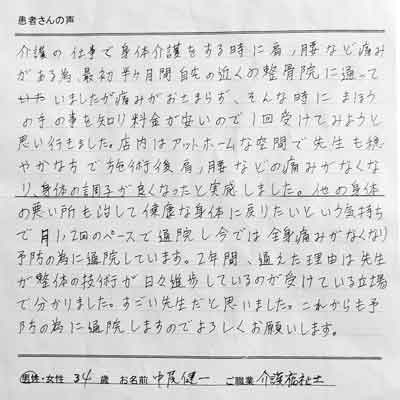 患者さんの声
介護の仕事で身体介護をする時に肩、腰など痛み
がある為、最初半ヶ月間自宅の近くの整骨院に通って
いたいましたが痛みがおさまらず、そんな時にまほう
の手の事を知り料金が安いので1回受けてみようと
思い行きました。店内はアットホームな空間で先生も穏
やかな方で施術後肩、腰などの痛みがなくな
り、身体の調子が良くなったと実感しました。他の身体
の悪い所も治して健康な身体に戻りたいという気持ち
で月1、2回のペースで通院し今では全身痛みがなくなり
予防の為に通院しています。2年間、通えた理由は先生
が整体の技術が日々進歩しているのが受けている立場
で分かりました。すごい先生だと思いました。これからも予
防の為に通院しますのでよろしくお願いします。
男性・女性 34 歳 お名前 中尾健一 ご職業 介護福祉士